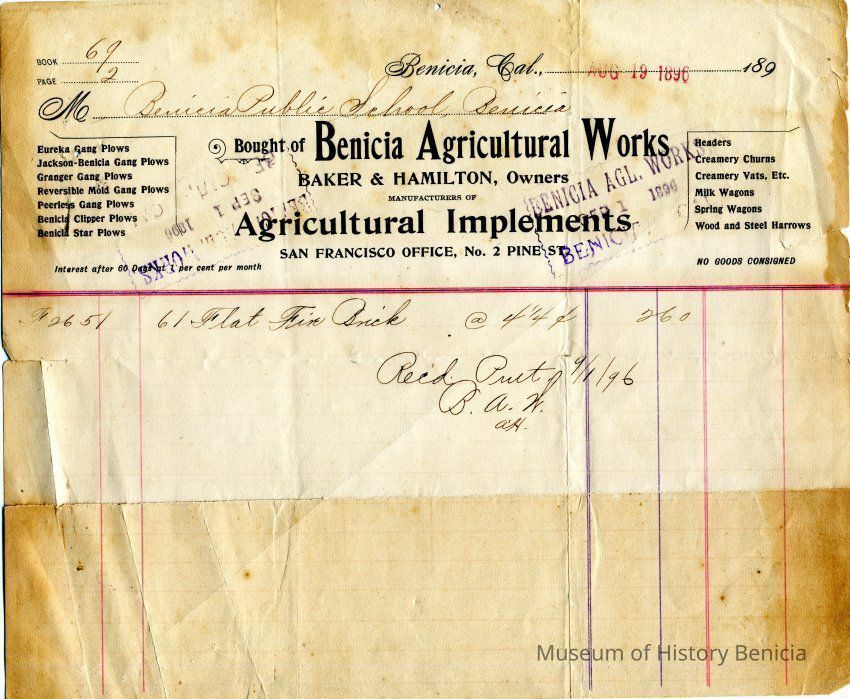 BOOK 69
PAGE 2
Benicia, Cal., AUG 19 1896 189
M Benicia Public School, Benicia
Bought of Benicia Agricultural Works
BAKER & HAMILTON, Owners
MANUFACTURERS OF
Agricultural Implements
SAN FRANCISCO OFFICE, No. 2 PINE ST.
Eureka Gang Plows
Jackson-Benicia Gang Plows
Granger Gang Plows
Reversible Mold Gang Plows
Peerless Gang Plows
Benicia Clipper Plows
Benicia Star Plows
Headers
Creamery Churns
Creamery Vats, Etc.
Milk Wagons
Spring Wagons
Wood and Steel Harrows
BENICIA AGL. WORKS
SEP 1 1896
BENICIA
SEP 1 1896
Interest after 60 Days at 1 per cent per month
NO GOODS CONSIGNED
61 Flat Fire Brick @ 4¼ ¢ 260
Rec'd Pmt 9/1/96
B. A. W.
Museum of History Benicia